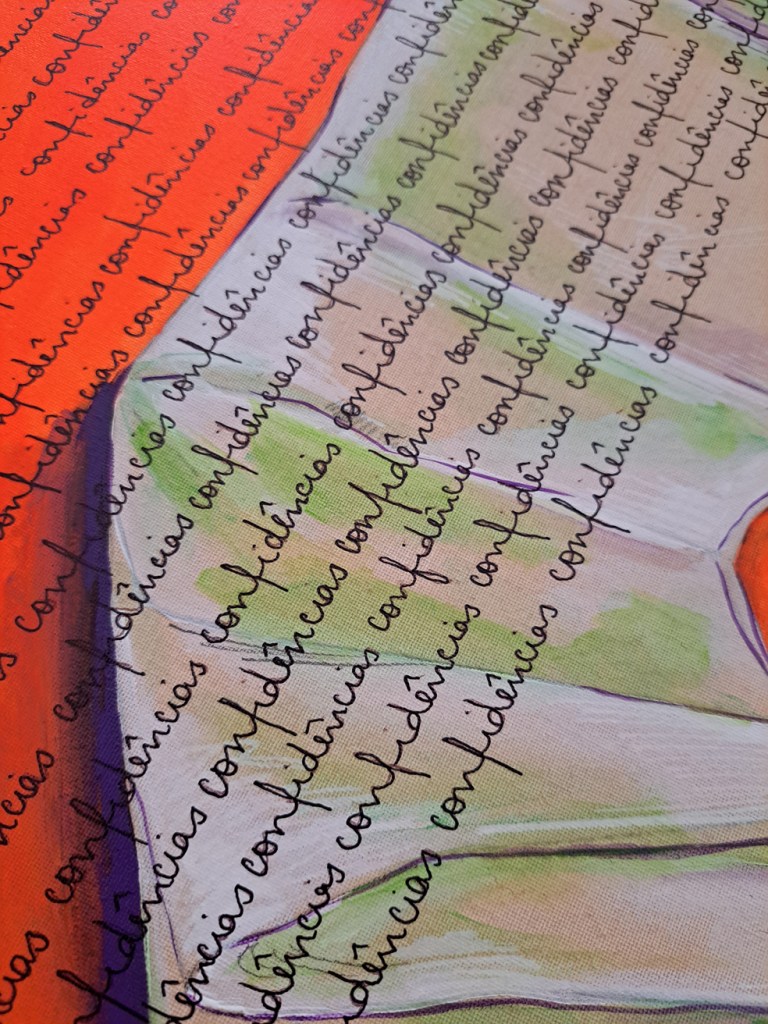 ências
cias confidên
s confidências co
dências confidências con
fidências confidências confidências
confidências confidências confidências
s confidências confidências confidências confidên
ncias confidências confidências confidências confidências confid
cias confidências confidências confidências confidências confidências
nfidências confidências confidências confidências confidências confid
dências confidências confidências confidências confidências confidências con
dências confidências confidências confidências confidências confid
dências confidências confidências confidências confidê